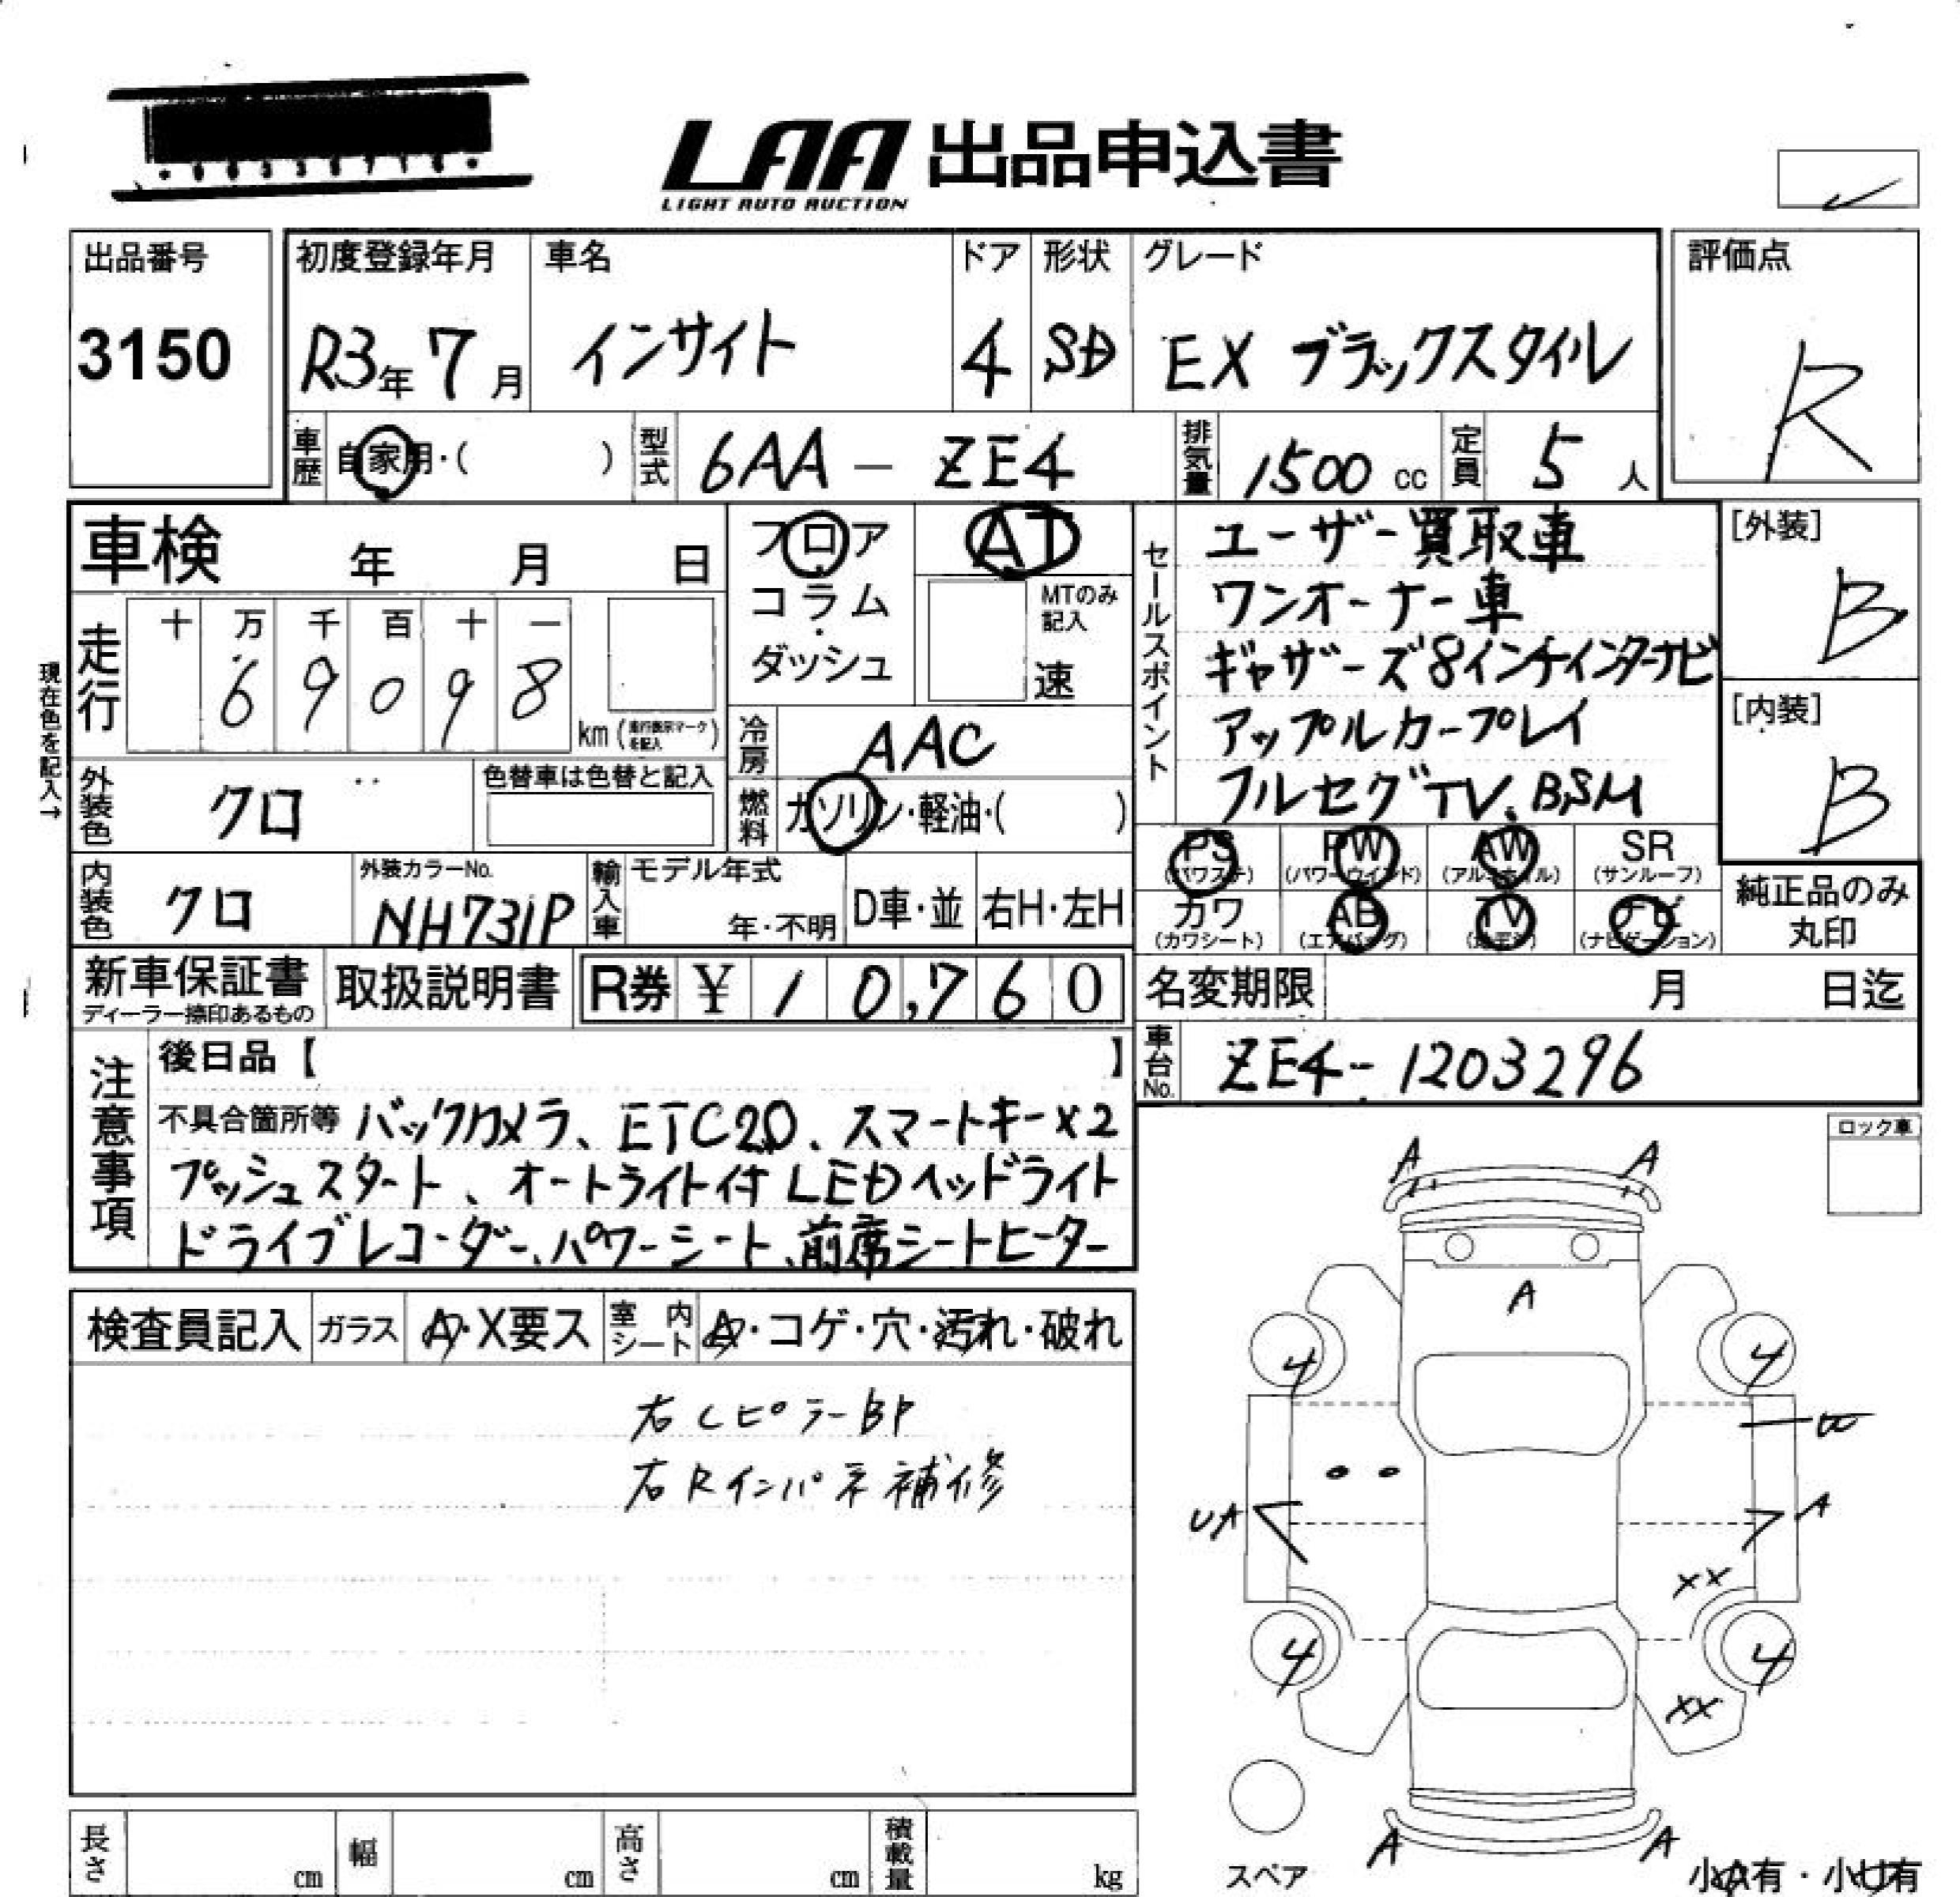 LAA 出品申込書
LIGHT AUTO AUCTION
出品番号
3150
初度登録年月
R3年7月
車名
インサイト
ドア
4
形状
SD
グレード
EX ブラックスタイル
評価点
R
車歴
自家用・( )
型式
6AA - ZE4
排気量
1500 cc
定員
5 人
車検 年 月 日
フロア
コラム・
ダッシュ
AT
MTのみ
記入
速
セールスポイント
ユーザー買取車
ワンオーナー車
ギャザーズ8インチインターナビ
アップルカープレイ
フルセグTV、BSM
[外装]
B
[内装]
B
現在色を記入→
走行
十 万 千 百 十 一
6 9 0 9 8
km (走行表示マークを記入)
冷房
AAC
燃料
ガソリン・軽油・( )
外装色
クロ
色替車は色替と記入
PS
(パワステ)
PW
(パワーウインド)
AW
(アルミホイル)
SR
(サンルーフ)
カワ
(カワシート)
AB
(エアバッグ)
TV
ナビ
(ナビゲーション)
純正品のみ
丸印
内装色
クロ
外装カラーNo.
NH731P
輸入車
モデル年式
年・不明
D車・並
右H・左H
新車保証書
ディーラー捺印あるもの
取扱説明書
R券 ¥ 10,760
名変期限 月 日迄
車台No.
ZE4-1203296
注意事項
後日品【 】
不具合箇所等 バックカメラ、ETC2.0、スマートキー×2
プッシュスタート、オートライト付LEDヘッドライト
ドライブレコーダー、パワーシート、前席シートヒーター
ロック車
検査員記入
ガラス
A・X要ス
室内シート
A・コゲ・穴・汚れ・破れ
右CピラーBP
右Rインパネ補修
A A
A
4 4
W
UA A
XX
4 4
XX
A A
スペア
小A有・小U有
長さ cm
幅 cm
高さ cm
積載量 kg